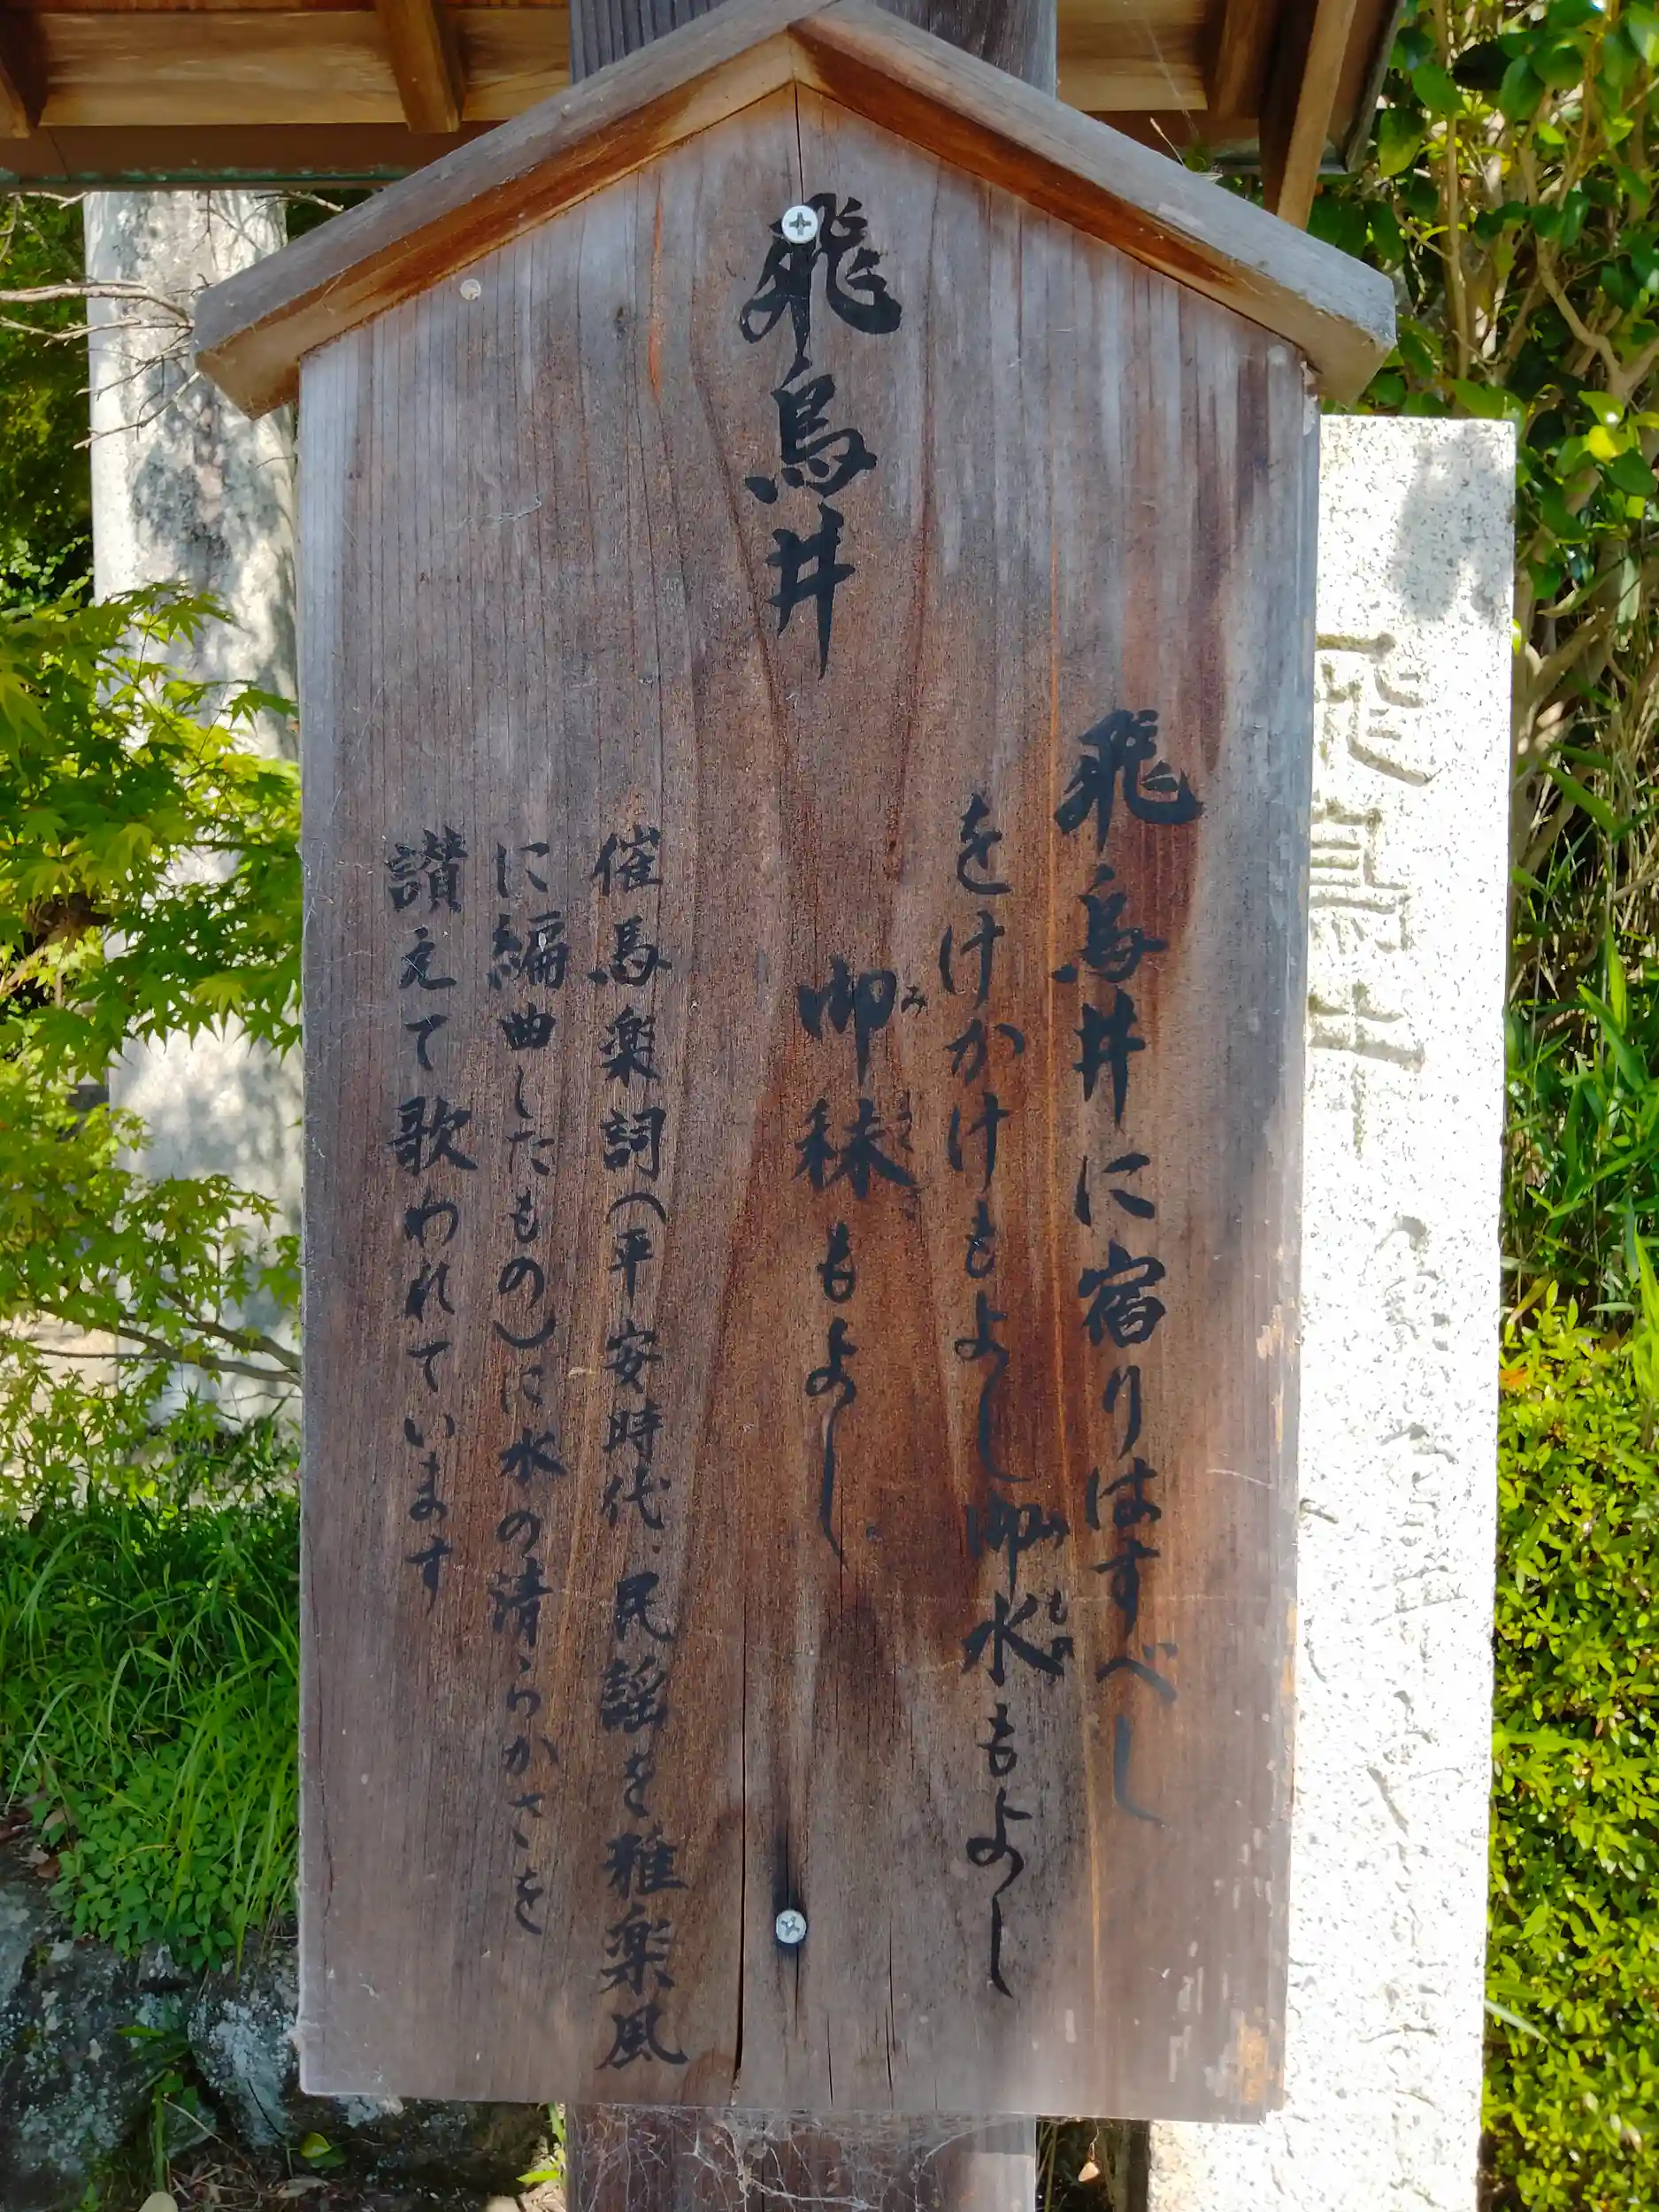 飛鳥井
飛鳥井に宿りはすべし
をけかけもよし御水もよし
御秣もよし
催馬楽詞(平安時代、民謡を雅楽風
に編曲したもの)に水の清らかさを
讃えて歌われています
飛鳥井